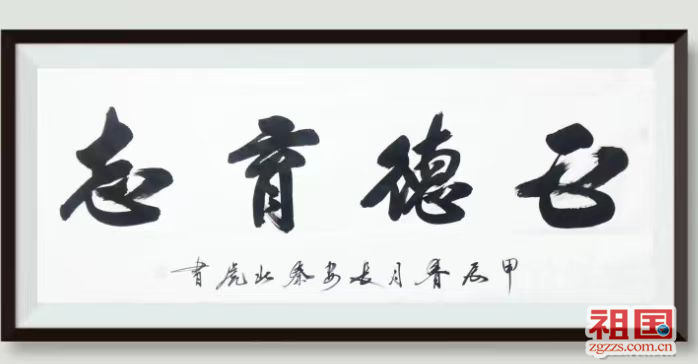 正德育志
甲辰春月長安秦北虎書
祖国
zgzzs.com.cn